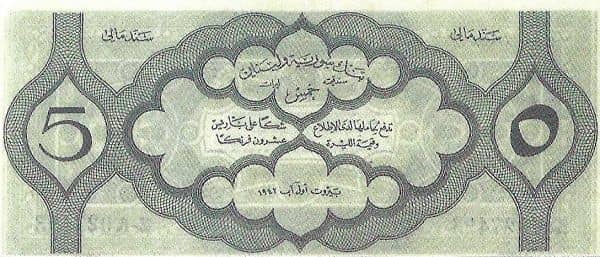 سند مالي
سند مالي
بنك سورية ولبنان
خمس ليرات
تدفع لحاملها لدى الاطلاع
وقيمة الليرة
شكا على باريز
عشرون فرنكا
بيروت اول آب ١٩٤٢
5
٥